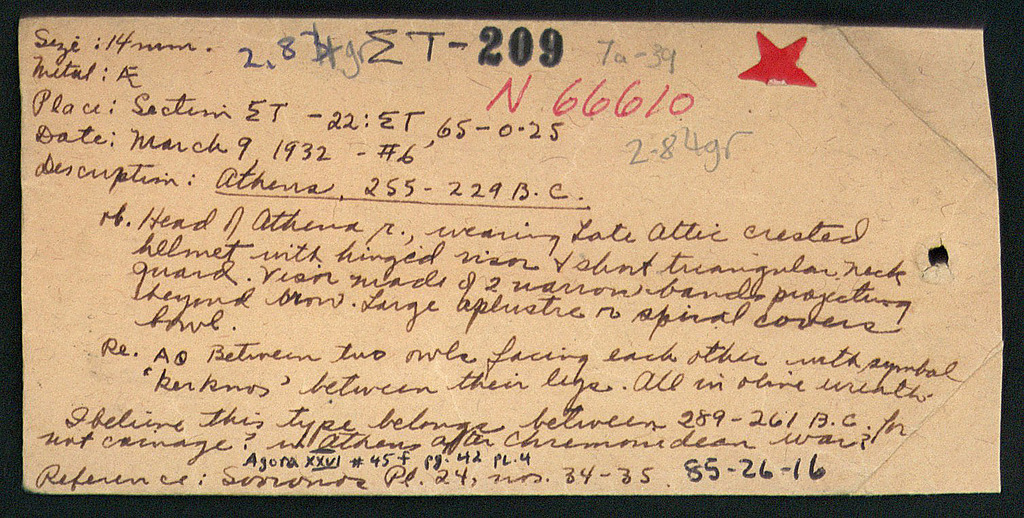 Size: 14 mm. 2.84gr ΣT-209 7a-39
Metal: Æ
N 66610
Place: Section ΣT -22: ΣT, 65-0.25
Date: March 9, 1932 - #6
2.84gr
Description: Athens, 255-229 B.C.
ob. Head of Athena r., wearing Late Attic crested
helmet with hinged visor & short triangular neck
guard. Visor made of 2 narrow bands projecting
beyond brow. Large aplustre or spiral covers
bowl.
Re. AΘ Between two owls facing each other with symbol
'kerknos' between their legs. All in olive wreath.
I believe this type belongs between 289-261 B.C. for
not coinage? in Athens after Chremonidean war?
Agora XXVI #45f pg. 42 pl. 4
Reference: Svoronos Pl. 24, nos. 34-35. 85-26-16